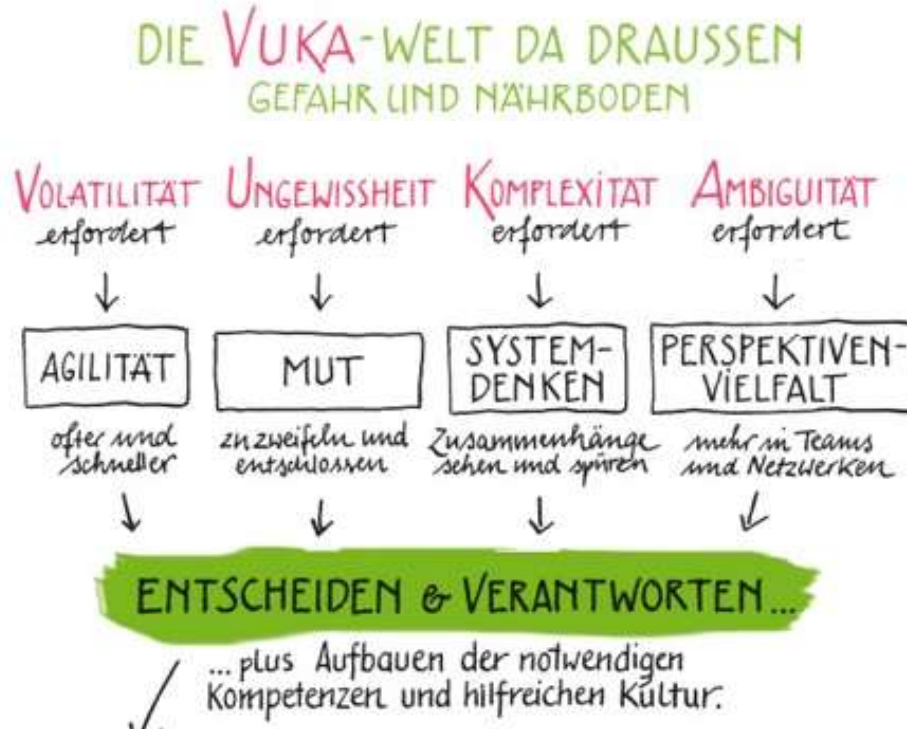 DIE VUKA-WELT DA DRAUSSEN
GEFAHR UND NÄHRBODEN
VOLATILITÄT
erfordert
AGILITÄT
öfter und
schneller
UNGEWISSHEIT
erfordert
MUT
zu zweifeln und
entschlossen
KOMPLEXITÄT
erfordert
SYSTEM-
DENKEN
Zusammenhänge
sehen und spüren
AMBIGUITÄT
erfordert
PERSPEKTIVEN-
VIELFALT
mehr in Teams
und Netzwerken
ENTSCHEIDEN & VERANTWORTEN...
...plus Aufbauen der notwendigen
Kompetenzen und hilfreichen Kultur.